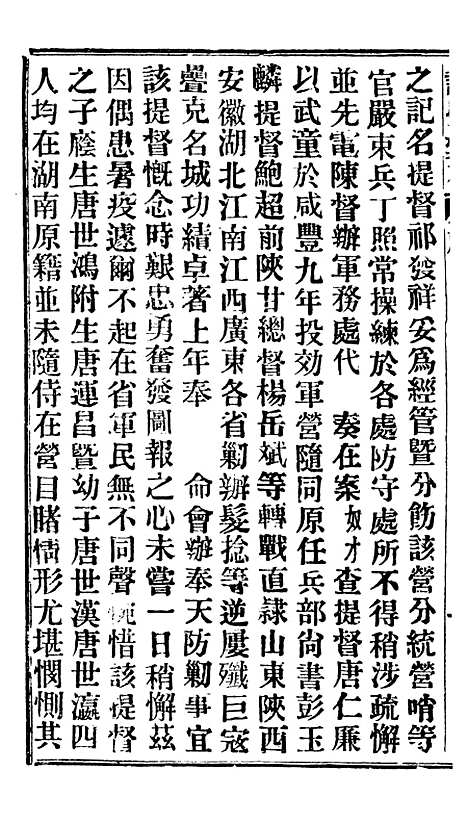 之記名提督祁發祥妥爲經管暨分飭該營分統營哨等
官嚴束兵丁照常操練於各處防守處所不得稍涉疏懈
並先電陳督辦軍務處代　奏在案奴才查提督唐仁廉
以武童於咸豐九年投効軍營隨同原任兵部尙書彭玉
麟提督鮑超前陝甘總督楊岳斌等轉戰直隸山東陝西
安徽湖北江南江西廣東各省剿辦髮捻等逆屢殲巨寇
疊克名城功績卓著上年奉　命會辦奉天防剿事宜
該提督慨念時艱忠勇奮發圖報之心未嘗一日稍懈茲
因偶患暑疫遽爾不起在省軍民無不同聲惋惜該提督
之子廕生唐世鴻附生唐運昌暨幼子唐世漢唐世瀛四
人均在湖南原籍並未隨侍在營目睹情形尤堪憫惻其